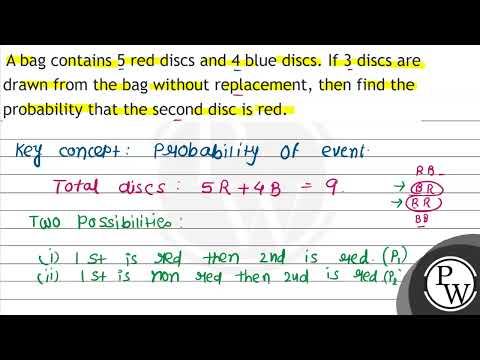 A bag contains 5 red discs and 4 blue discs. If 3 discs are
drawn from the bag without replacement, then find the
probability that the second disc is red.
Key concept: Probability of event.
Total discs: 5R + 4B = 9.
RB
→ BR
→ RR
BB
Two Possibilities:
(i) 1st is red then 2nd is red. (P1)
(ii) 1st is non red then 2nd is red. (P2)
PW